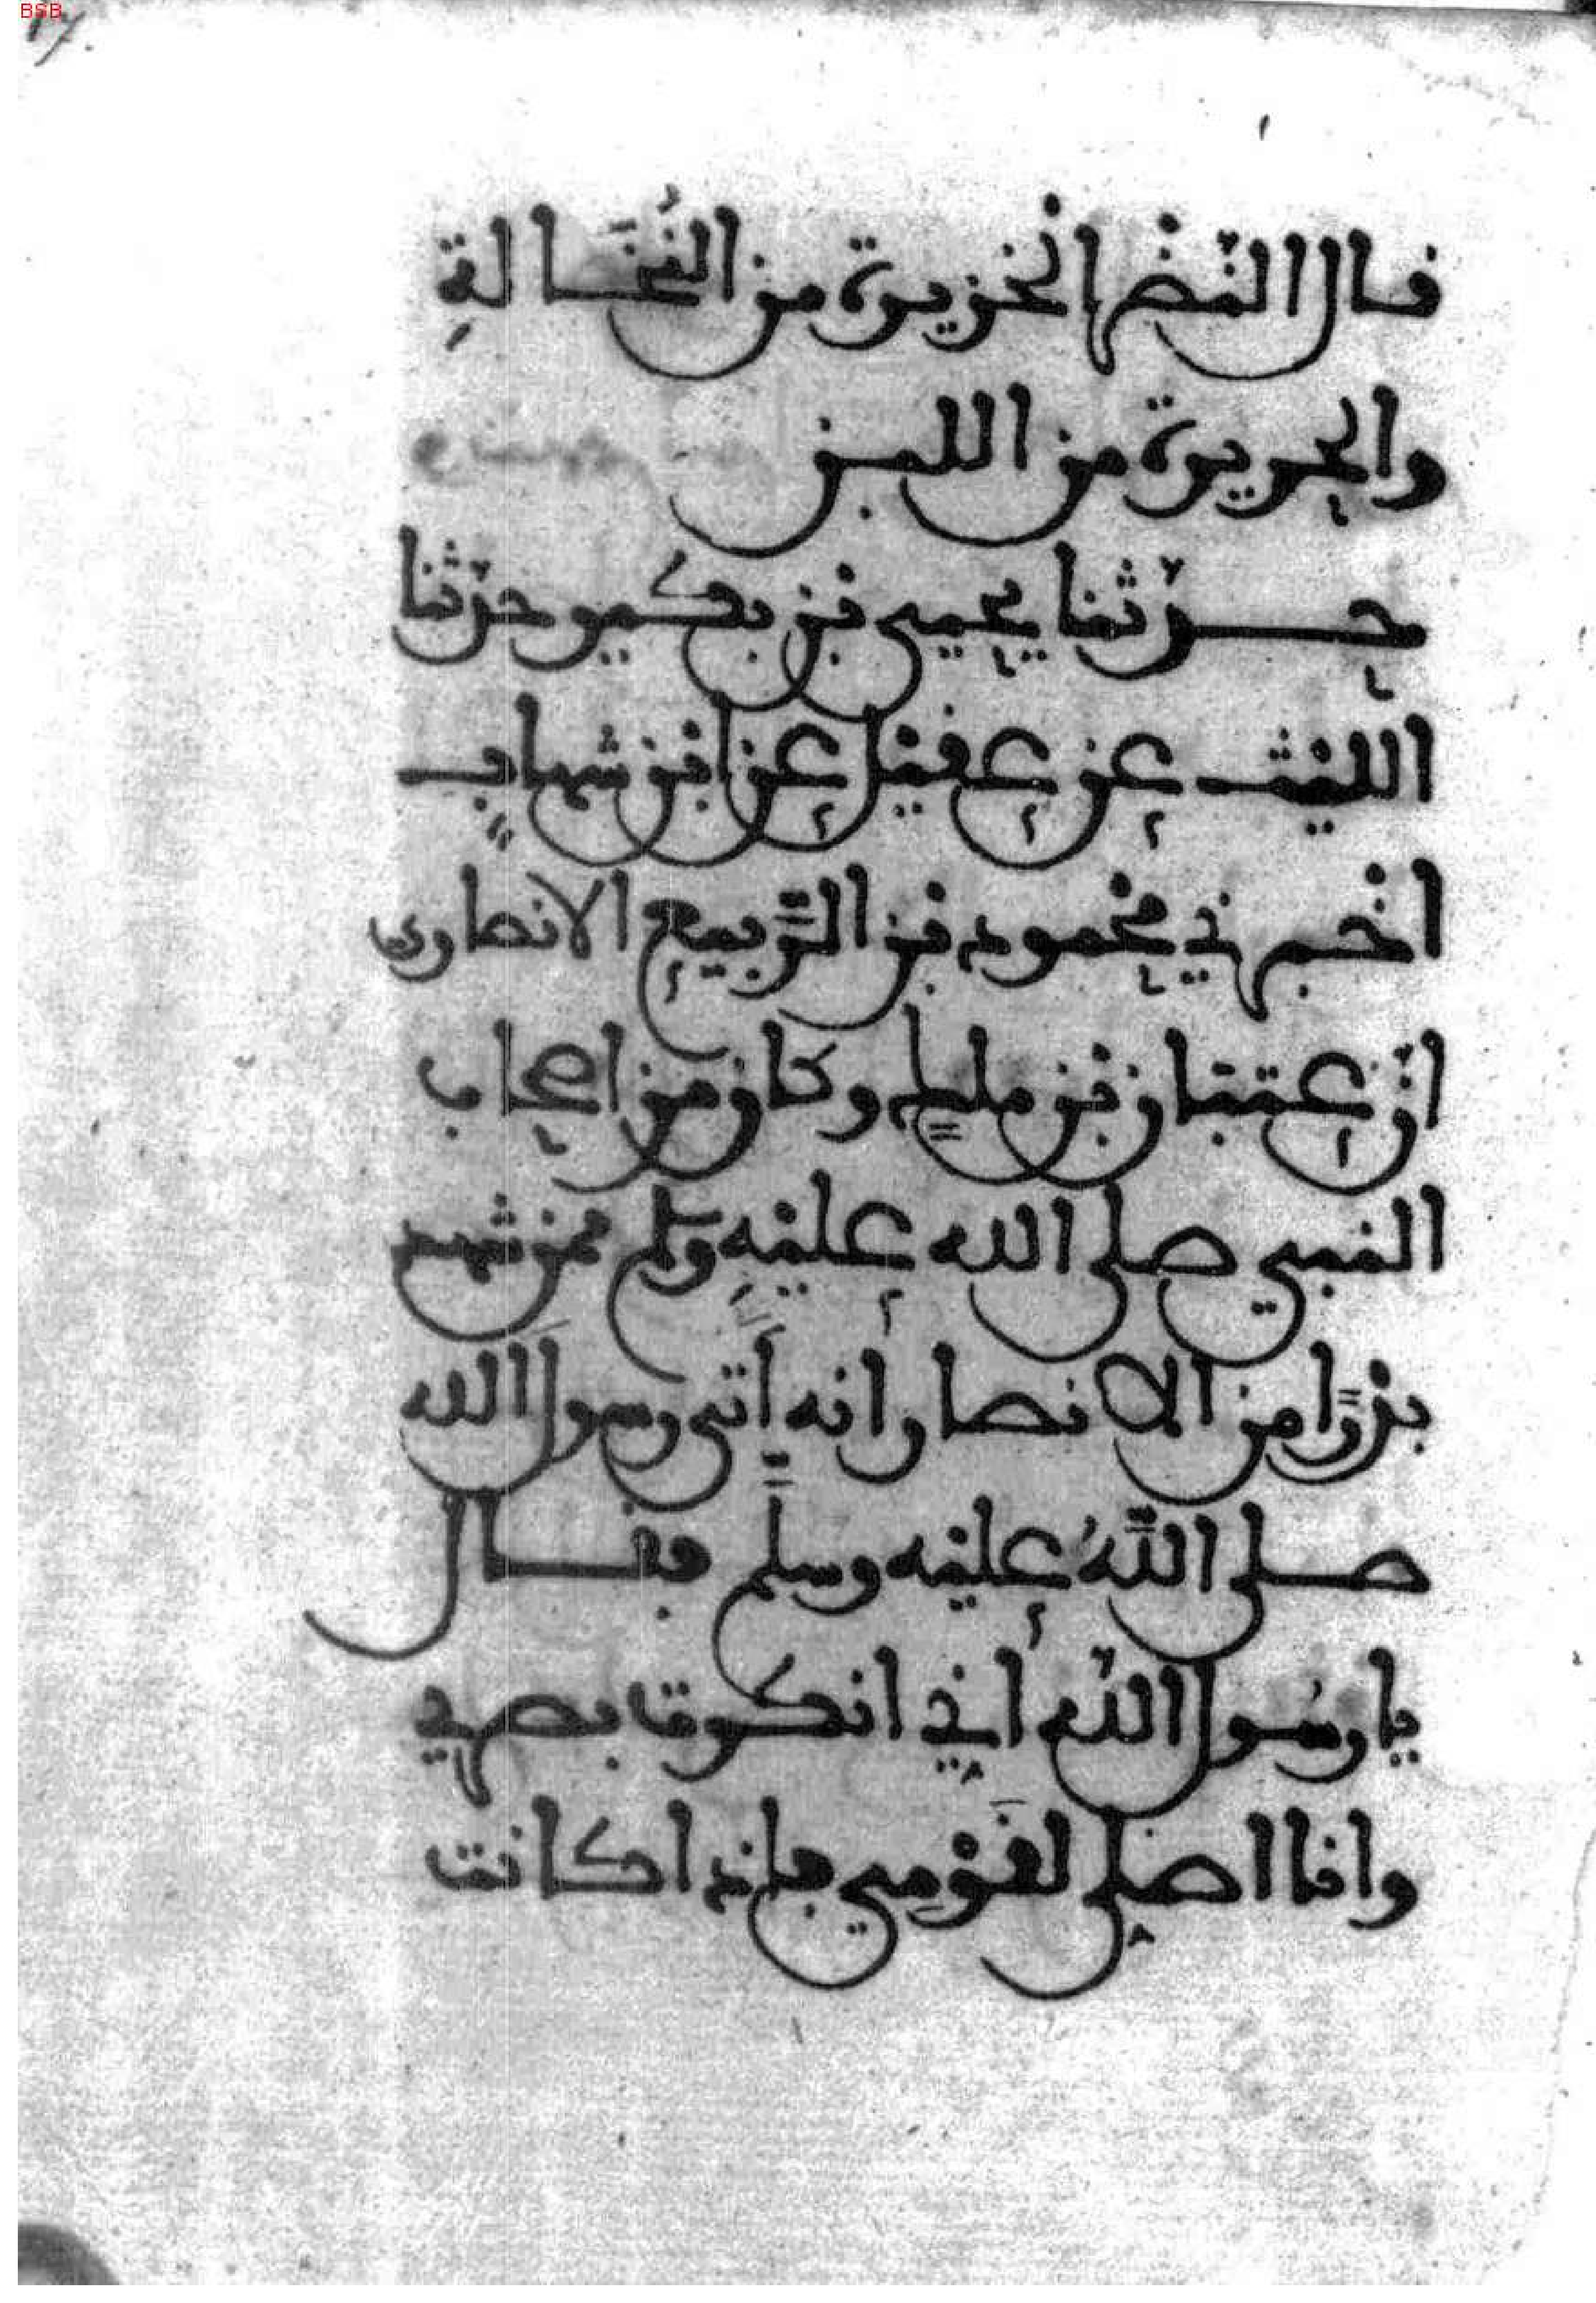 BSB
قال النضر الخزيرة من النُّخَالةِ
والحريرة من اللبن
حدّثنا يحيى بن بكير حدّثنا
الليث عن عقيل عن ابن شهابٍ
اخبرني محمود بن الرَّبيع الانصارى
انّ عتبان بن ملكٍ وكان من اصحاب
النبي صلى الله عليهِ وسلم ممن شهد
بدرًا من الانصار أنه أَتى رسولَ الله
صلى اللهُ عليه وسلم فقال
يا رسُول الله إني انكرت بصري
وانا اصلي لقَوْمِي فإذا كانت